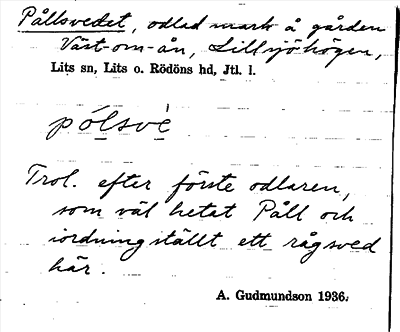 Pållsvedet, odlad mark å gården
Väst-om-ån, Lillsjöhögen,
Lits sn, Lits o. Rödöns hd, Jtl. l.
pólsvè
Trol. efter förste odlaren,
som väl hetat Påll och
iordningställt ett rågsved
här.
A. Gudmundson 1936.